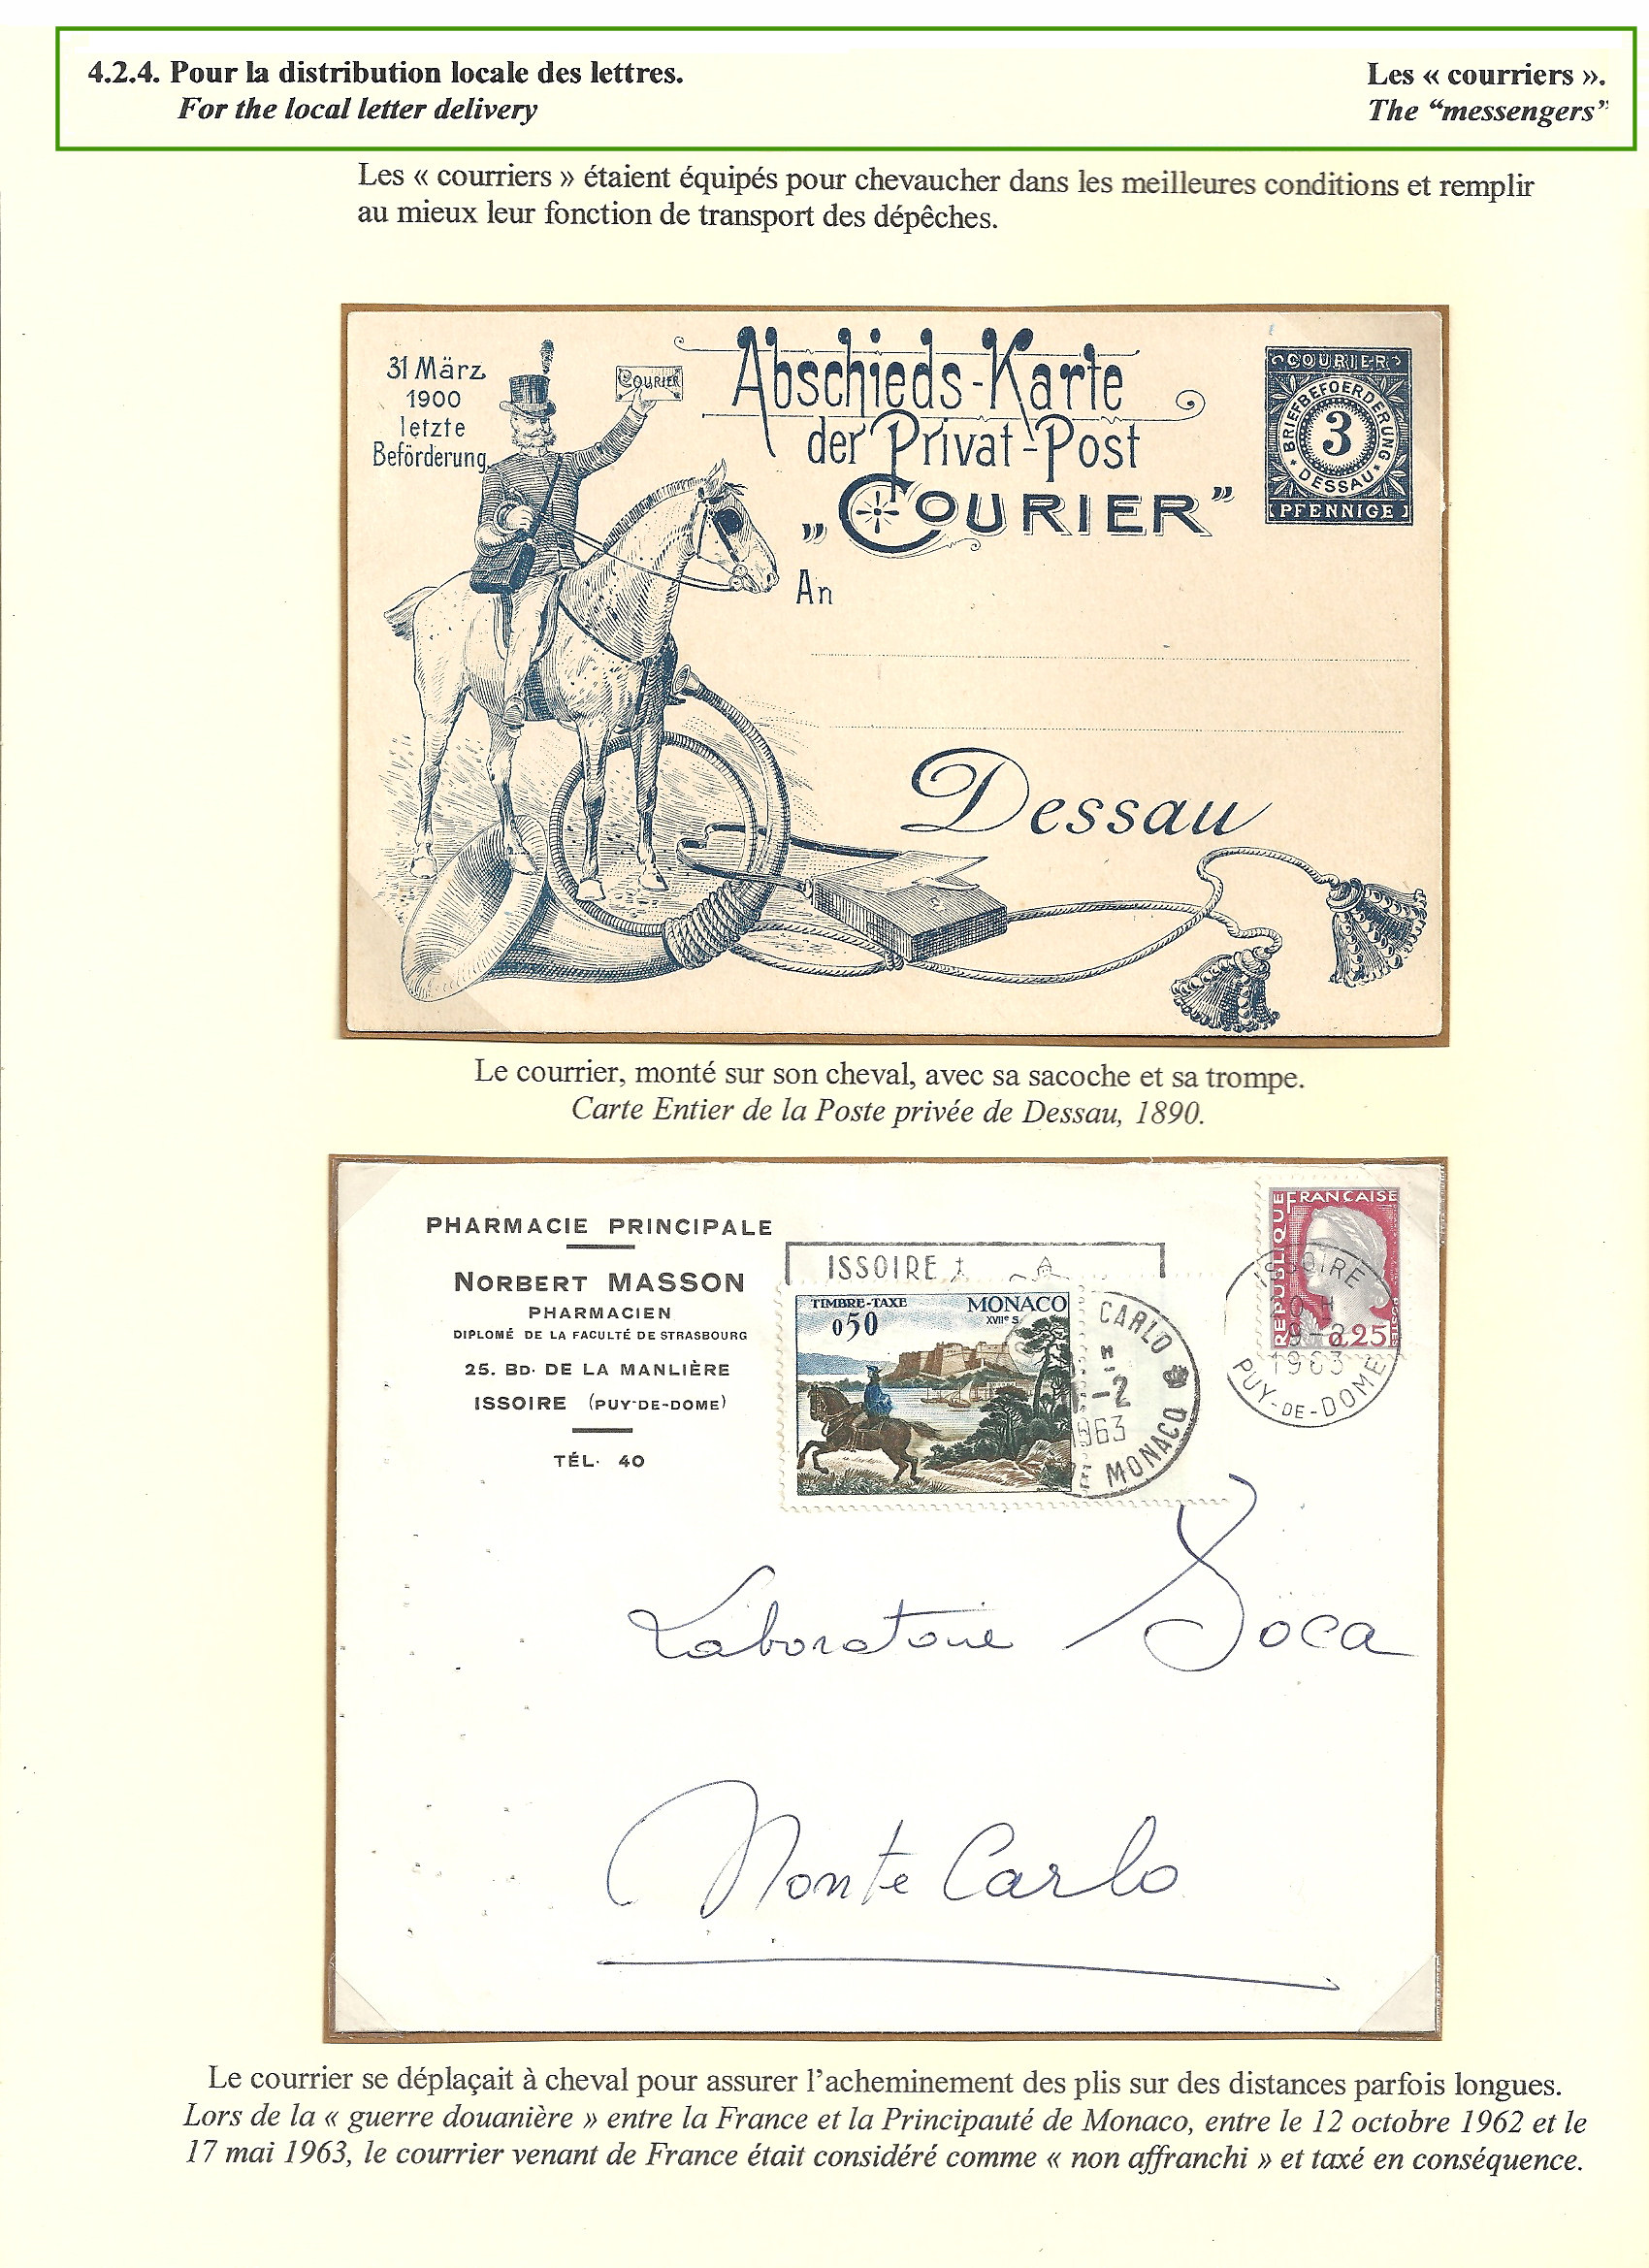 4.2.4. Pour la distribution locale des lettres.
Les « courriers ».
For the local letter delivery
The “messengers”
Les « courriers » étaient équipés pour chevaucher dans les meilleures conditions et remplir
au mieux leur fonction de transport des dépêches.
31 März
1900
letzte
Beförderung
COURIER
Abschieds-Karte
der Privat-Post
„COURIER”
An
Dessau
COURIER
BRIEFBEFOERDERUNG
3
* DESSAU *
PFENNIGE
Le courrier, monté sur son cheval, avec sa sacoche et sa trompe.
Carte Entier de la Poste privée de Dessau, 1890.
PHARMACIE PRINCIPALE
NORBERT MASSON
PHARMACIEN
DIPLOMÉ DE LA FACULTÉ DE STRASBOURG
25. BD. DE LA MANLIÈRE
ISSOIRE (PUY-DE-DOME)
TÉL. 40
ISSOIRE
TIMBRE-TAXE
MONACO
0,50
XVIIe S
CARLO
-2
1963
MONACO
REPUBLIQUE
FRANCAISE
0,25
POSTES
ISSOIRE
1963
PUY-DE-DOME
Laboratoire Soca
Monte Carlo
Le courrier se déplaçait à cheval pour assurer l’acheminement des plis sur des distances parfois longues.
Lors de la « guerre douanière » entre la France et la Principauté de Monaco, entre le 12 octobre 1962 et le
17 mai 1963, le courrier venant de France était considéré comme « non affranchi » et taxé en conséquence.